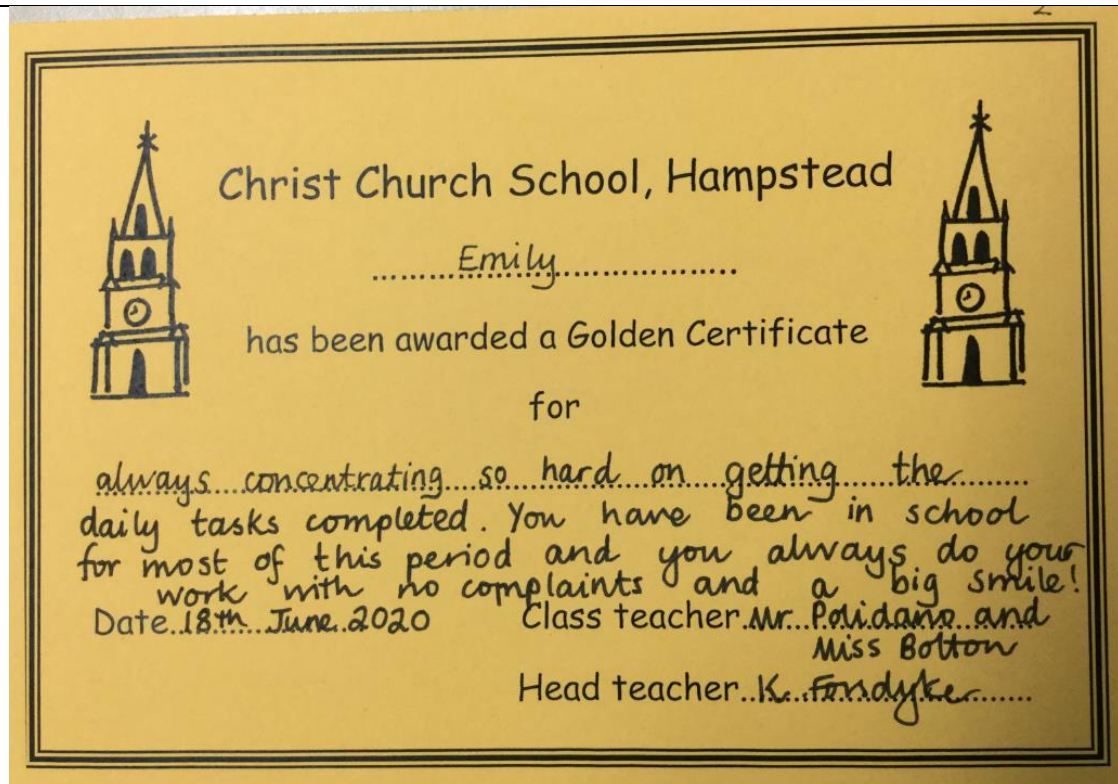 Christ Church School, Hampstead
Emily
has been awarded a Golden Certificate
for
always concentrating so hard on getting the
daily tasks completed. You have been in school
for most of this period and you always do your
work with no complaints and a big smile!
Date 18th June 2020 Class teacher Mr Polidano and
Miss Bolton
Head teacher K. Fondyke